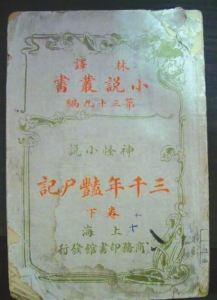 林譯
小說叢書
第三十九編
神怪小說
三千年艷尸記
卷下
上海
商務印書館發行